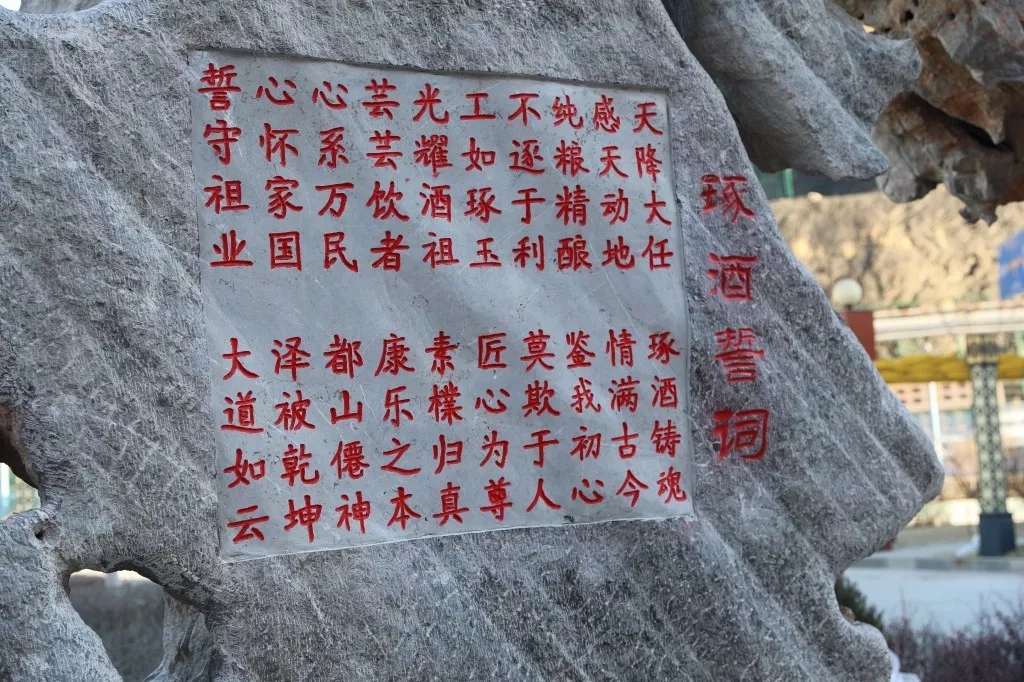 琢酒誓词
天降大任 琢酒铸魂
感天动地 情满古今
纯粮精酿 鉴我初心
不逐于利 莫欺于人
工如琢玉 匠心为尊
光耀酒祖 素檏归真
芸芸饮者 康乐之本
心系万民 都山僊神
心怀家国 泽被乾坤
誓守祖业 大道如云